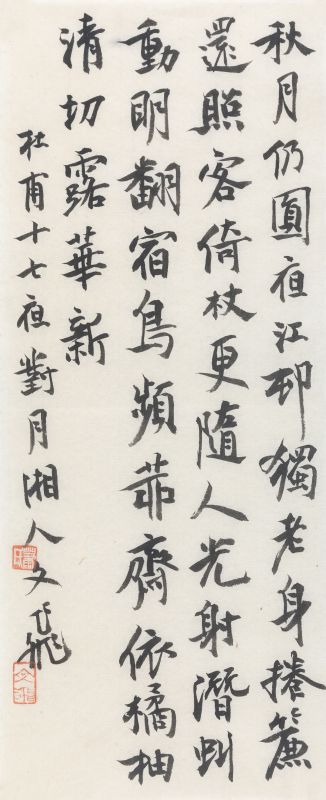 秋月仍圓夜江邨獨老身捲簾
還照客倚杖更隨人光射潛虯
動明翻宿鳥頻茆齋依橘柚
清切露華新
杜甫十七夜對月湘人文